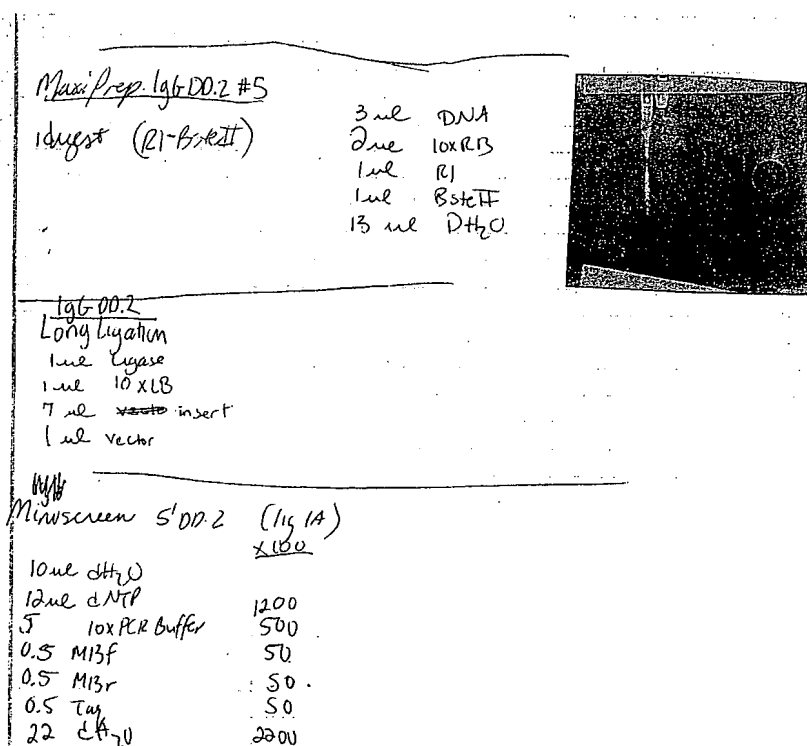 Maxi Prep. IgG DD.2 #5
digest (RI-BsteII)
3 ul DNA
2 ul 10xRB
1 ul RI
1 ul BsteII
13 ul DH2O
IgG DD.2
Long Ligation
1 ul Ligase
1 ul 10xLB
7 ul insert
1 ul vector
Miniscreen 5' DD.2 (lig 1A)
x100
10 ul dH2O
12 ul dNTP 1200
5 10x PCR Buffer 500
0.5 M13f 50
0.5 M13r 50
0.5 Taq 50
22 dH2O 2200